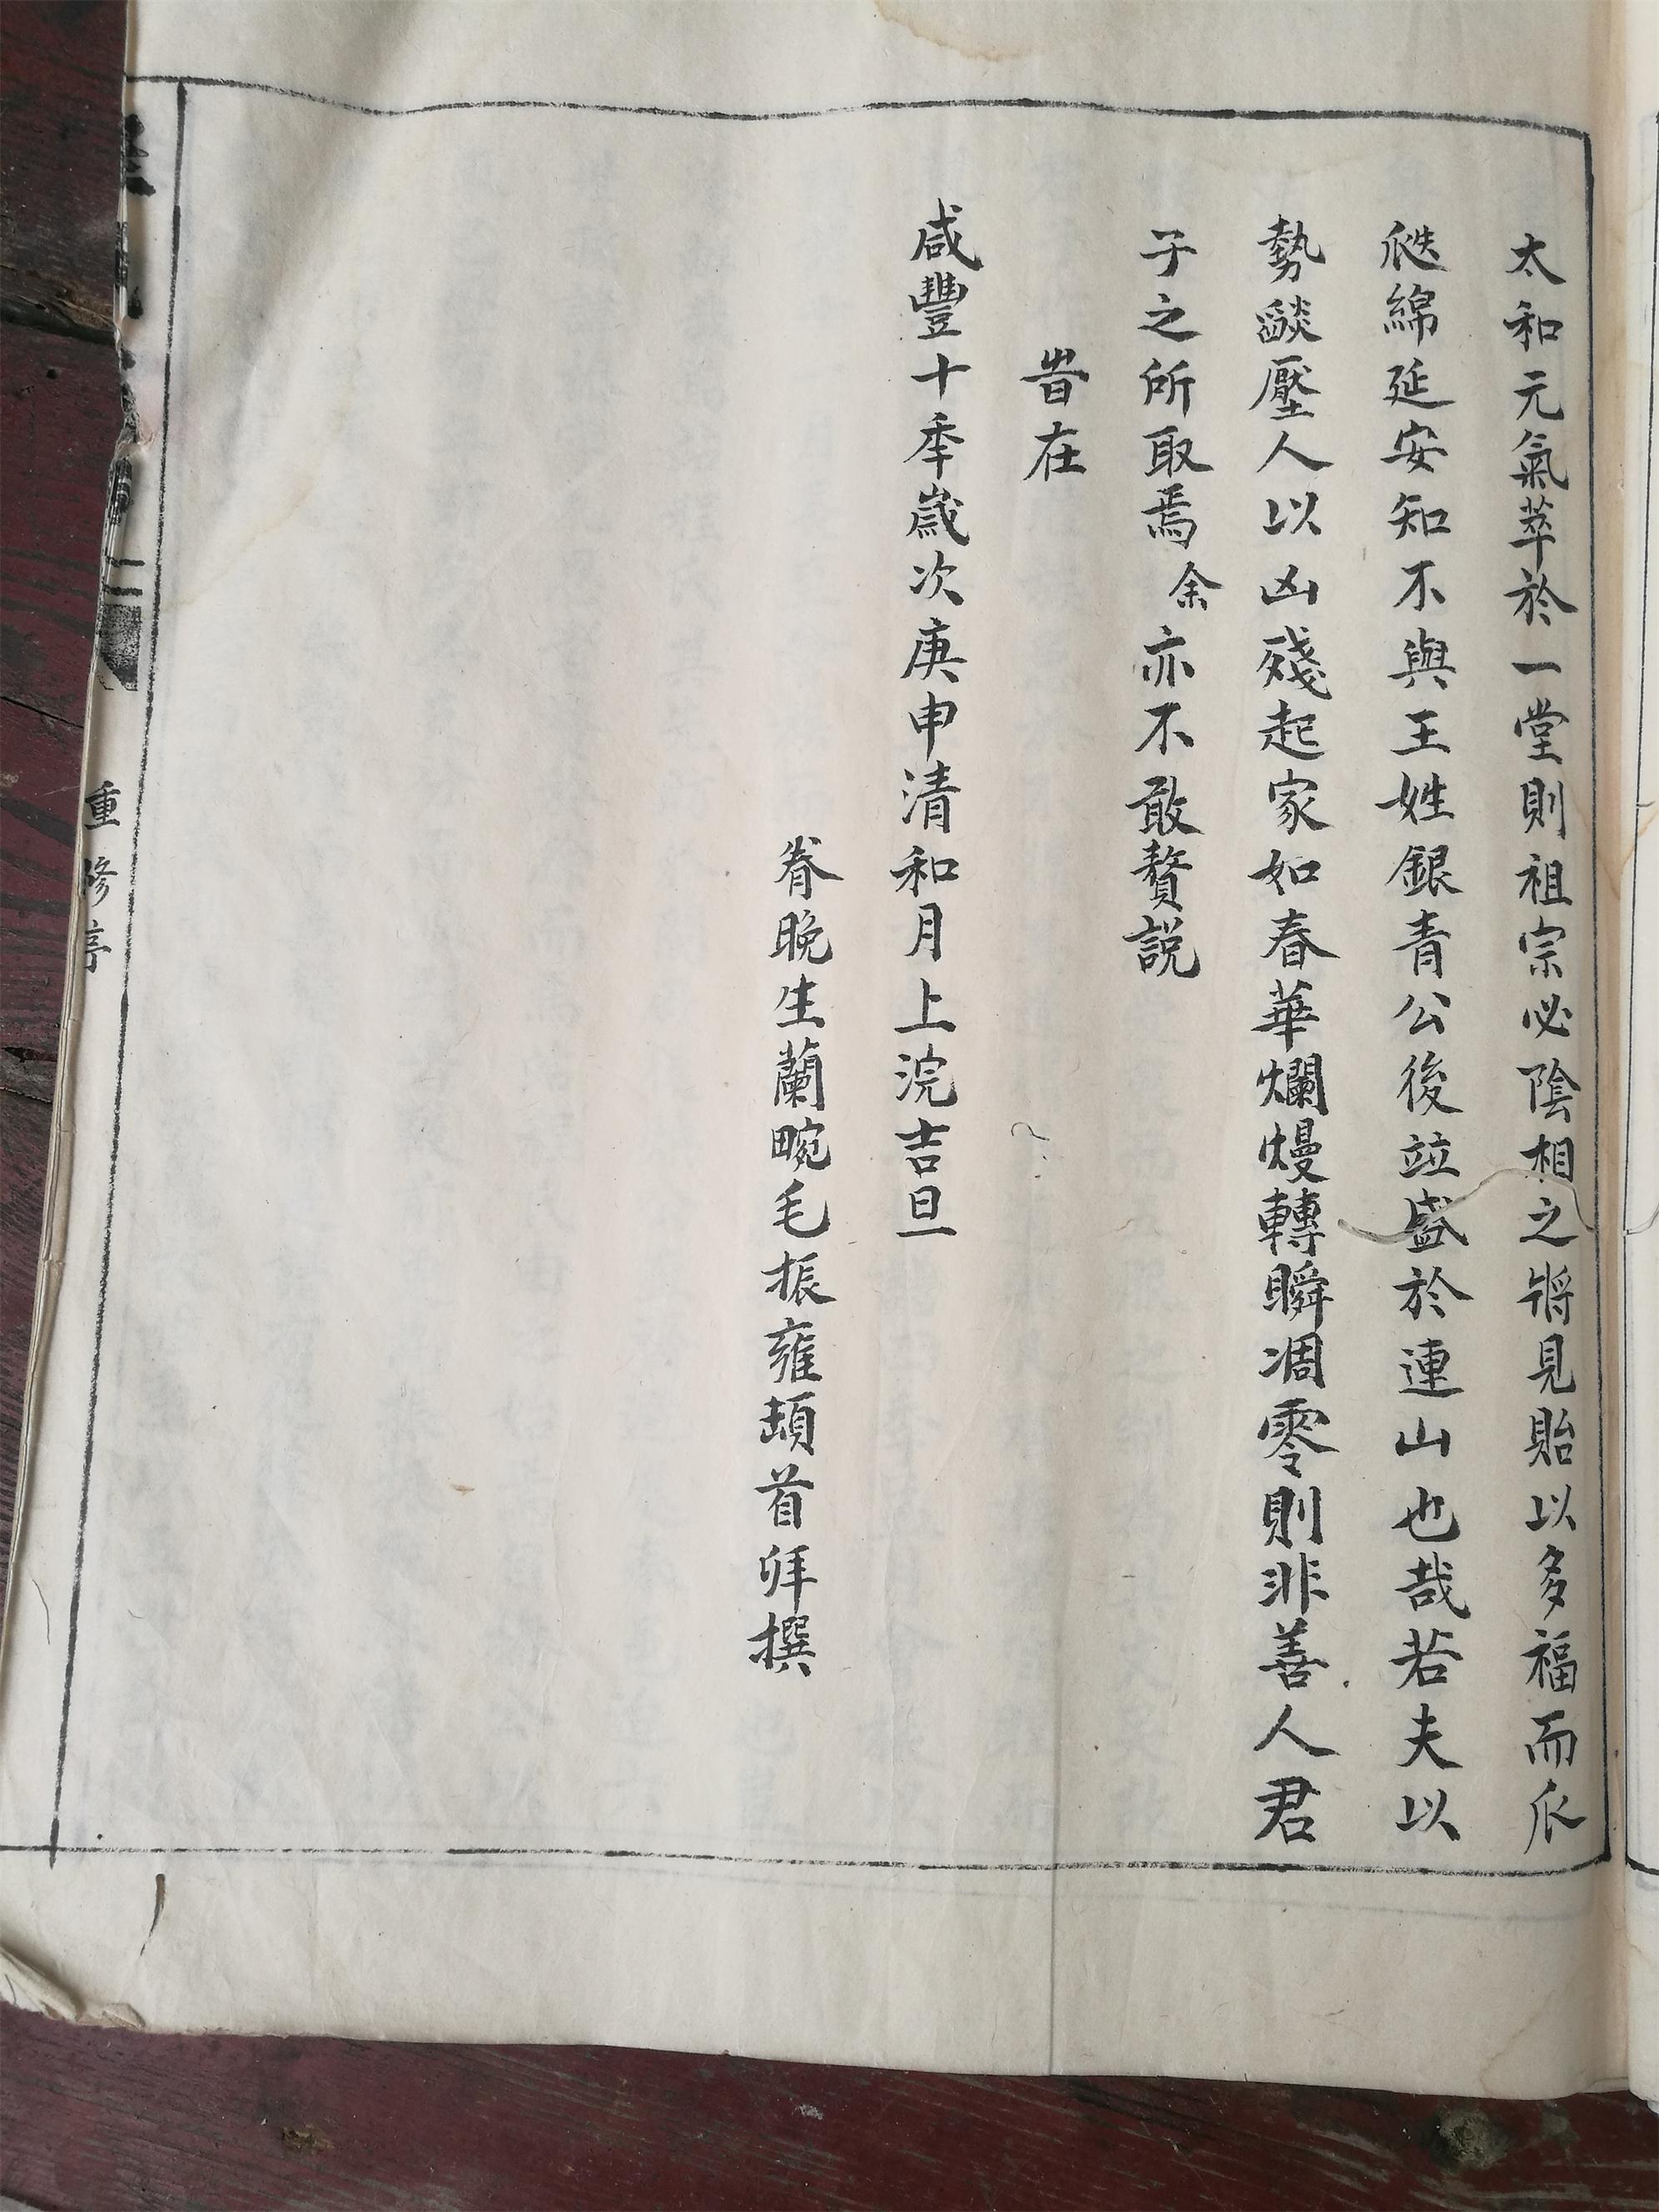 太和元氣萃於一堂則祖宗必陰相之將見貽以多福而瓜
瓞綿延安知不與王姓銀青公後竝盛於連山也哉若夫以
勢燄壓人以凶殘起家如春華爛熳轉瞬凋零則非善人君
子之所取焉余亦不敢贅説
旹在
咸豐十季歲次庚申清和月上浣吉旦
眷晚生蘭畹毛振雍頓首拜撰
重修亭